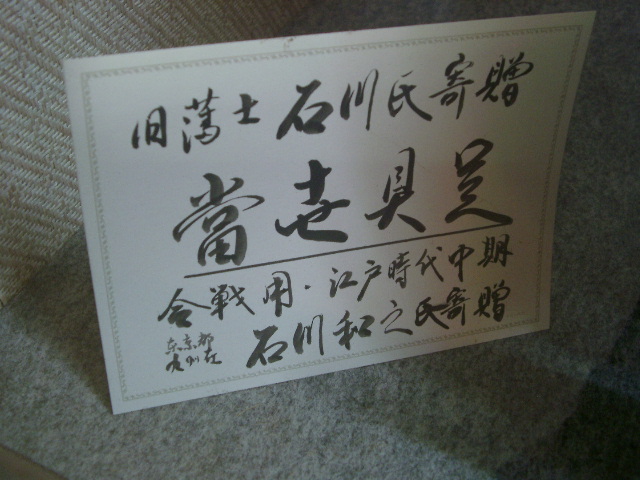 旧藩士 石川氏寄贈
當世具足
合戦用・江戸時代中期
東京都
石川和之氏寄贈